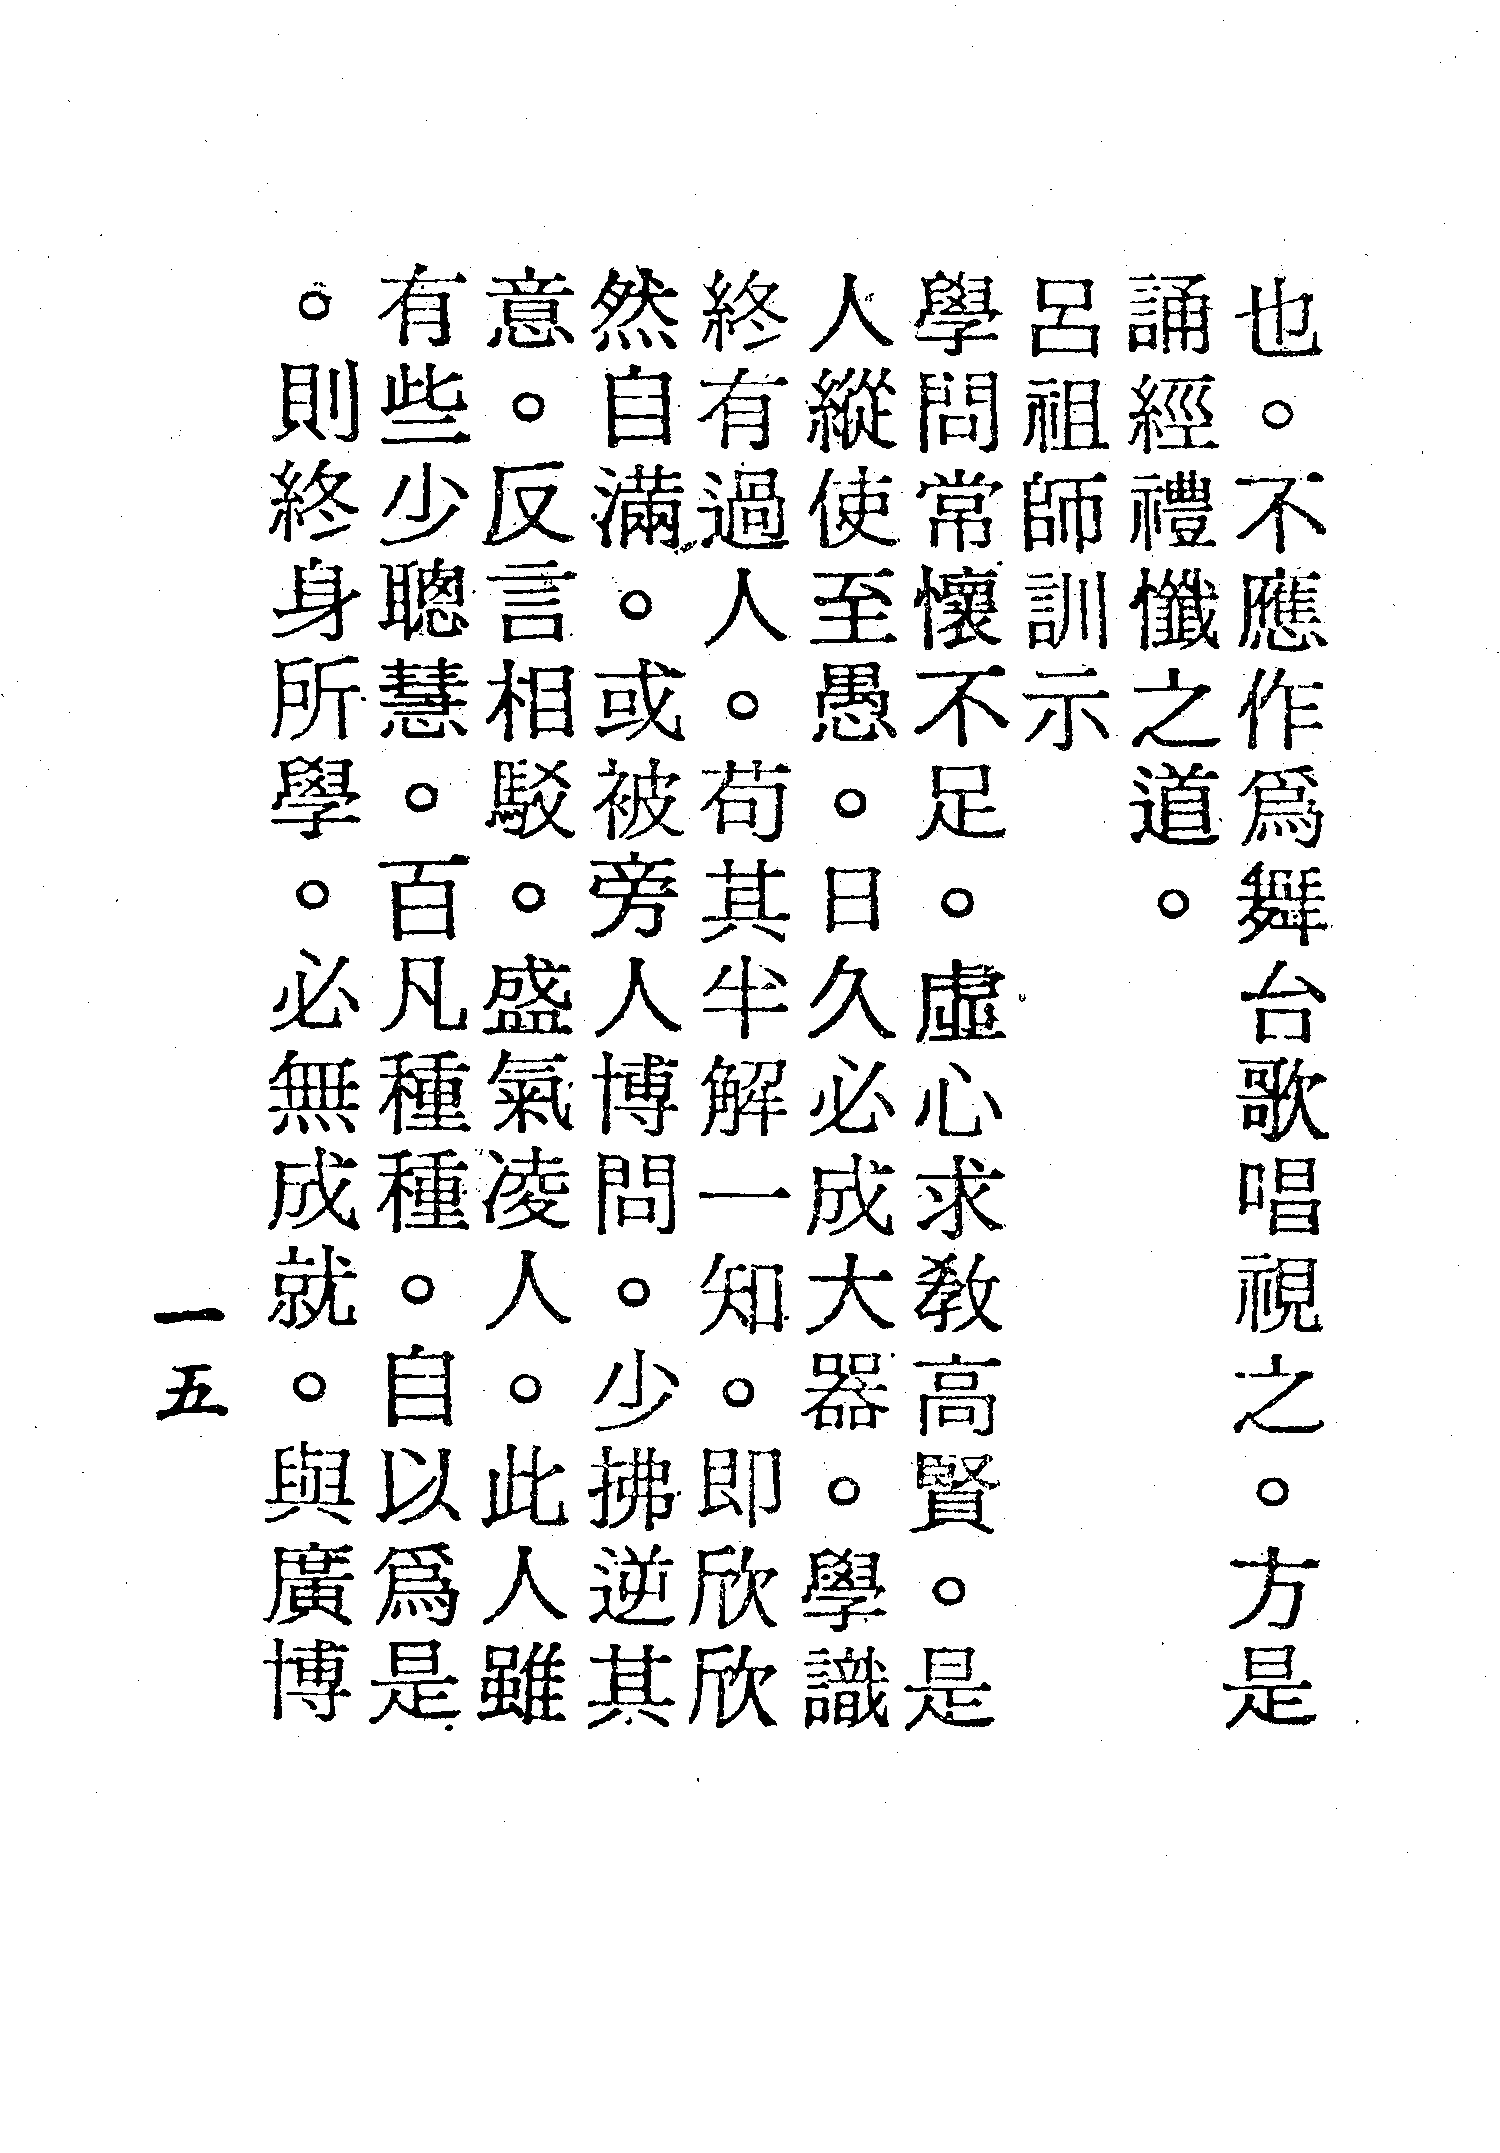 也。不應作爲舞台歌唱視之。方是
誦經禮懺之道。
呂祖師訓示
學問常懷不足。虛心求教高賢。是
人縱使至愚。日久必成大器。學識
終有過人。苟其半解一知。即欣欣
然自滿。或被旁人博問。少拂逆其
意。反言相駁。盛氣凌人。此人雖
有些少聰慧。百凡種種。自以爲是
。則終身所學。必無成就。與廣博
一五